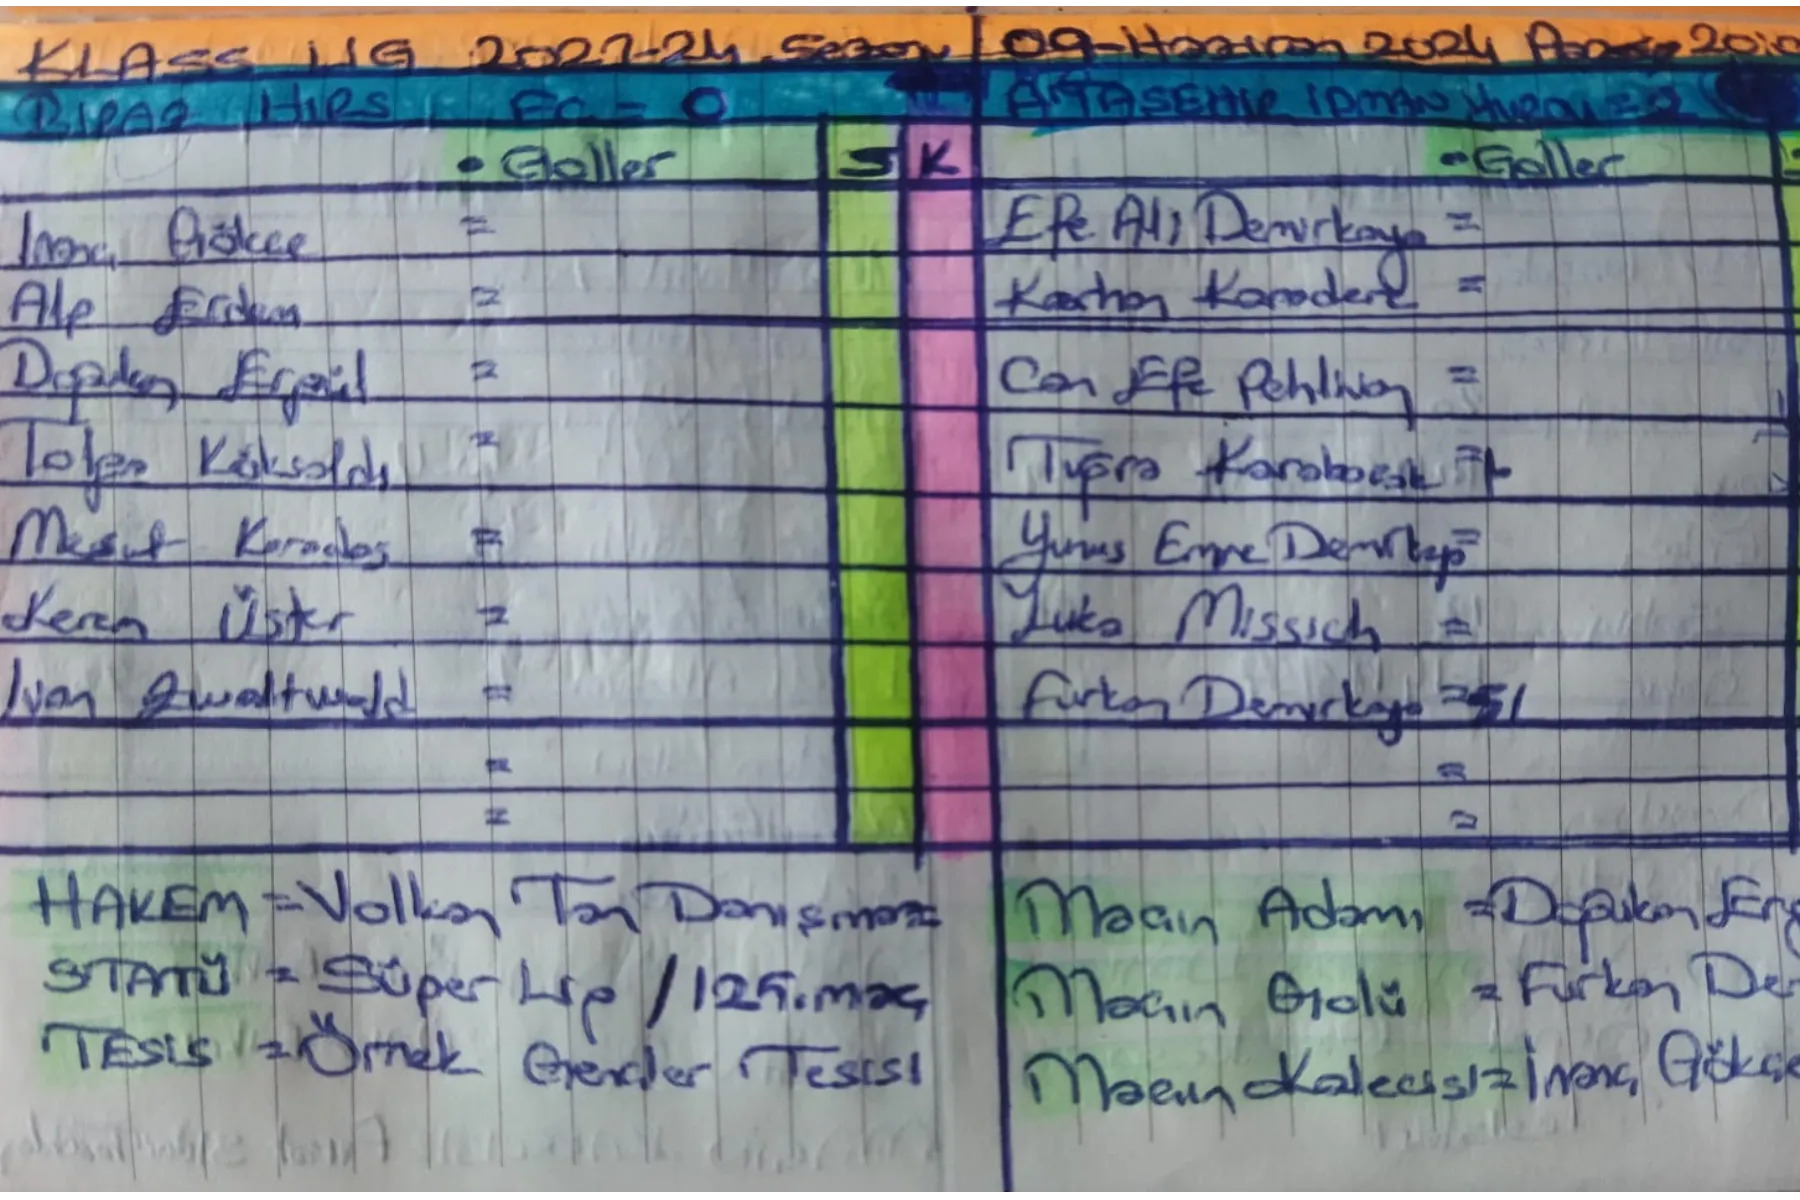 KLASS LİG 2023-24 Sezonu
09-Haziran 2024 Pazar 20:0
FC = 0
ATAŞEHİR İDMAN YURDU = 2
• Goller S K
• Goller
İnanç Gökçe =
Alp Erdem =
Dopukan Ergül =
Tolga Köksaldı =
Mesut Karadaş =
Kerem Üster =
Ivan Zwaltwald =
=
=
Efe Ali Demirkaya =
Kaan Karadere =
Can Efe Pehlivan =
Tuğra Karabacak = 1
Yunus Emre Demirkap =
Luka Missich =
Furkan Demirkaya = 51
=
=
HAKEM = Volkan Tan Danışmaz
STATÜ = Süper Lig / 125.maç
TESİS = Örnek Gençler Tesisi
Maçın Adamı = Dopukan Erg
Maçın Golü = Furkan De
Maçın Kalecisi = İnanç Gökçe